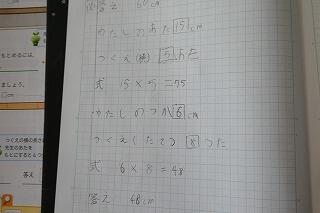 答え 60cm
わたしのあた 15 cm
つくえ(横) 5 あた
式 15×5=75
わたしのつか 6 cm
つくえ(たて) 8 つか
式 6×8=48
答え 48cm
もとめるには、
ましょう。
つくえの横の長さ
先生のあたを
もとにすると
答え